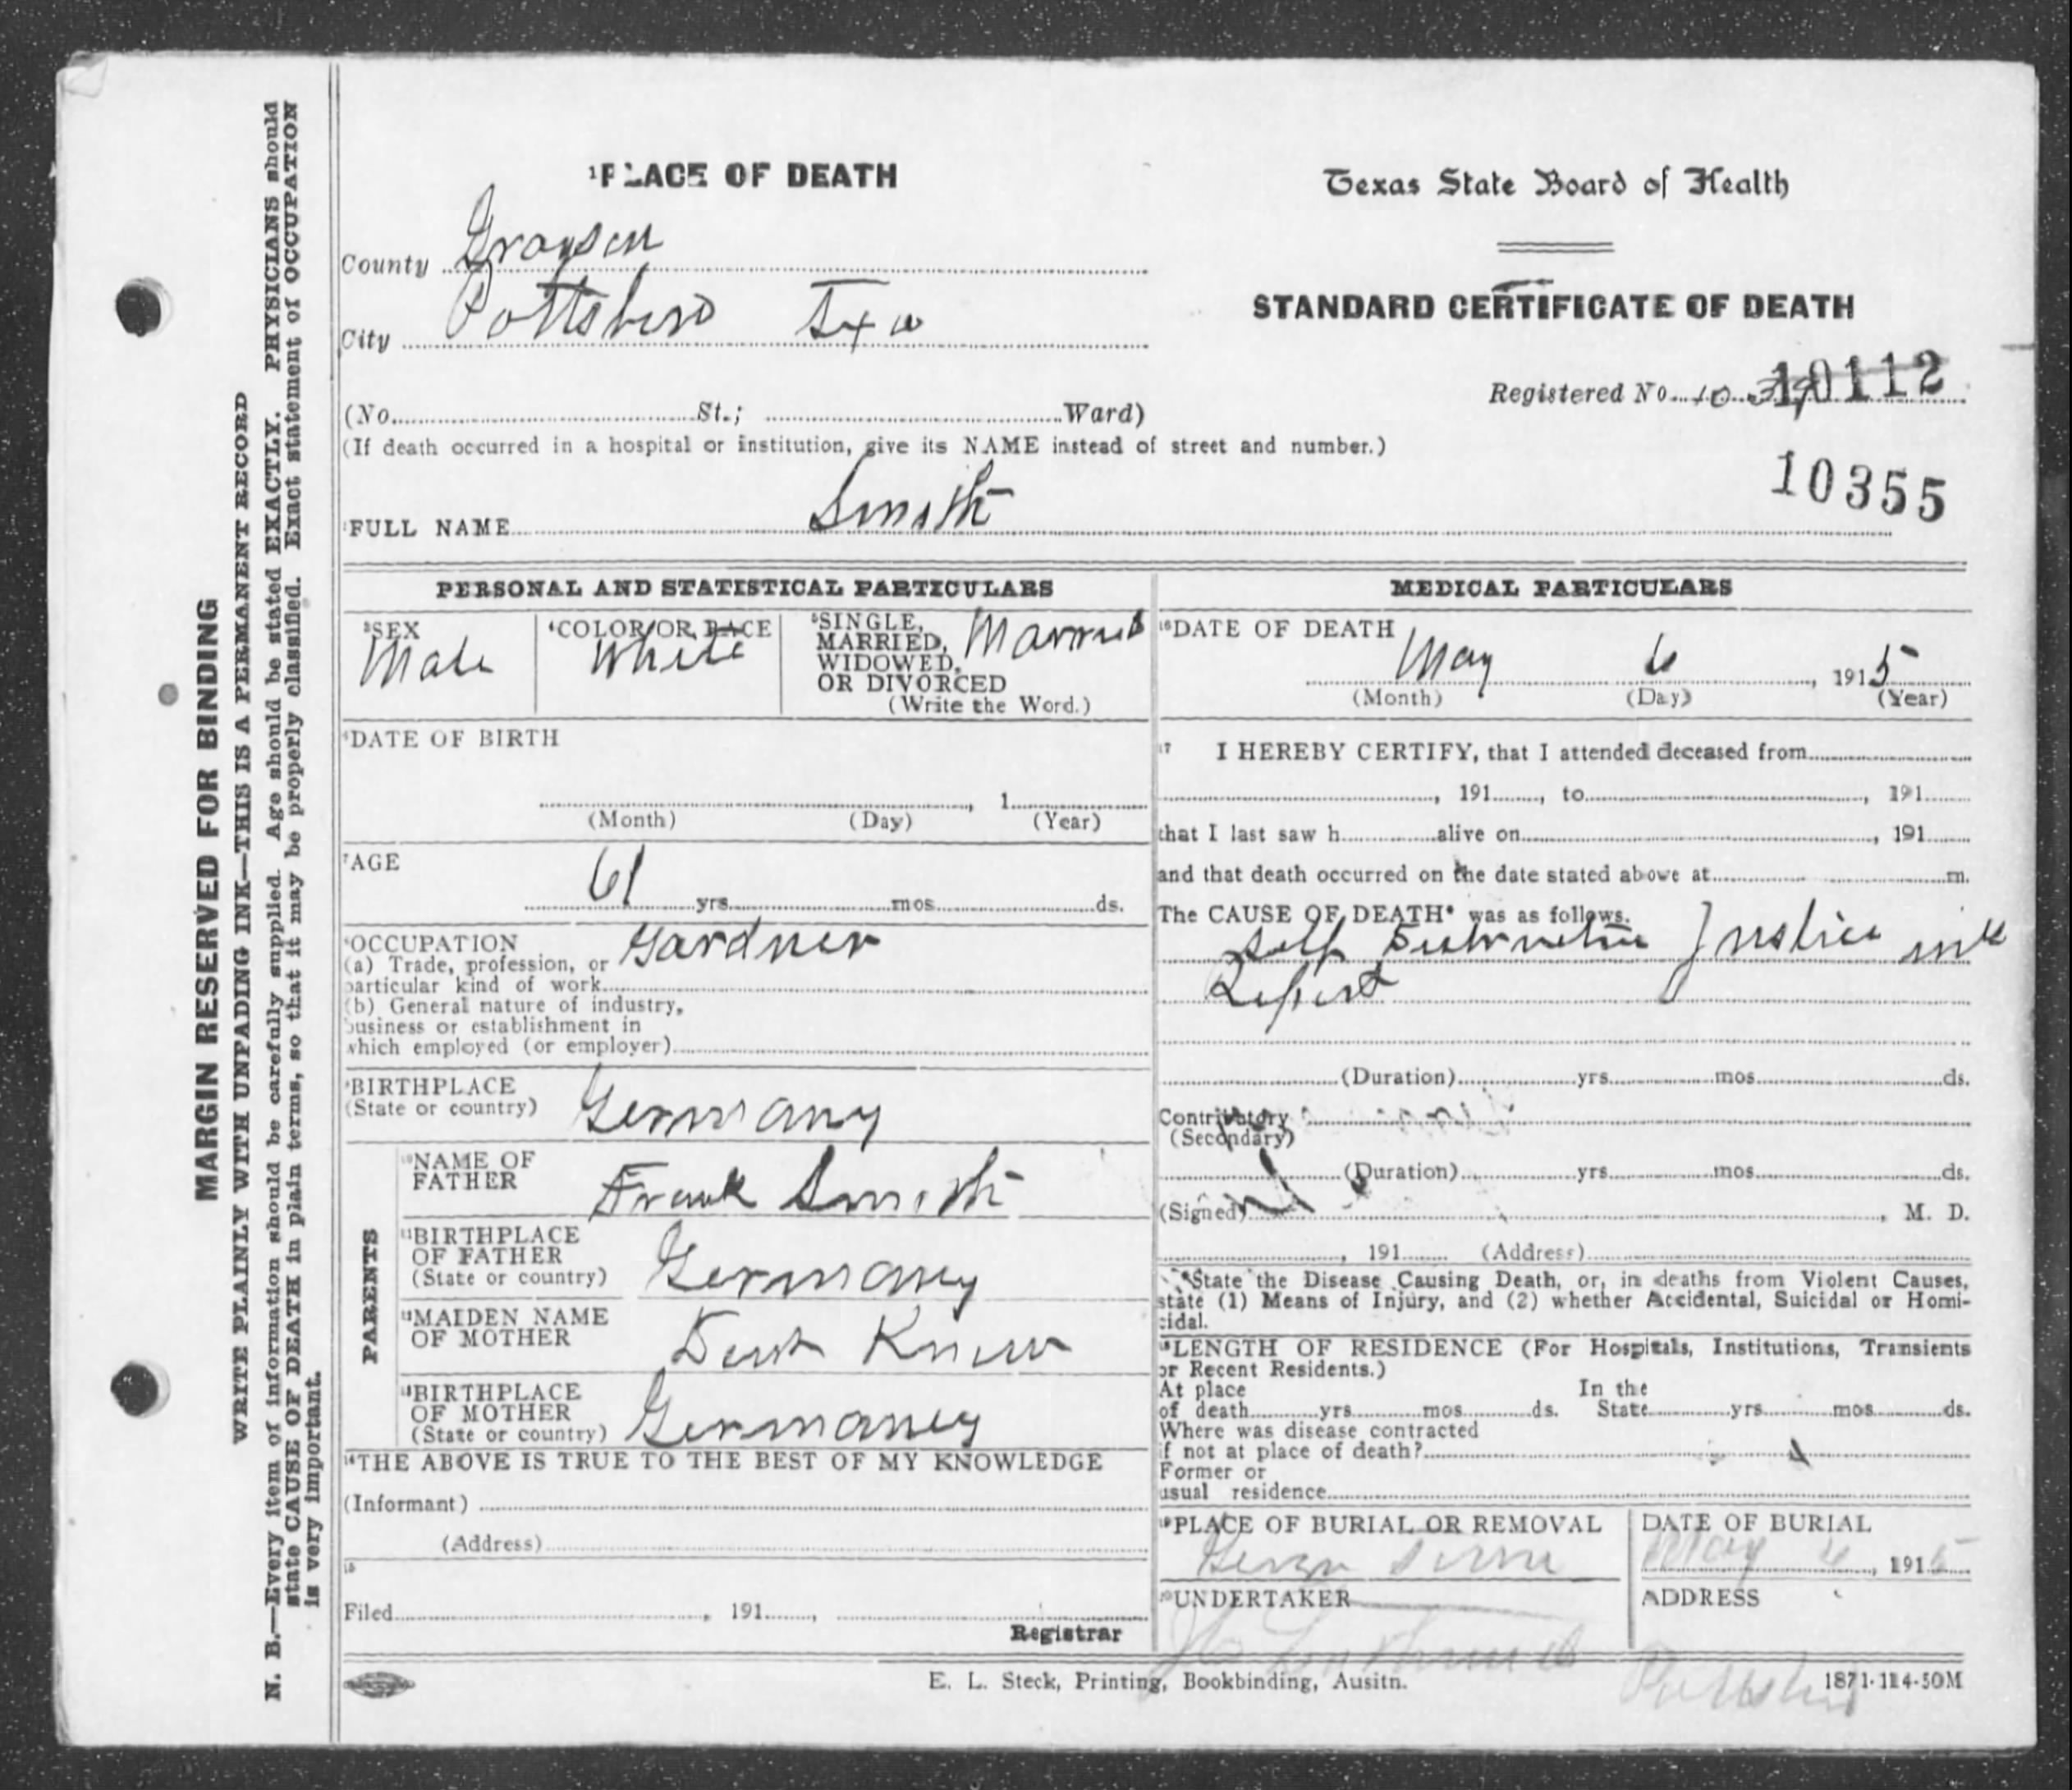 MARGIN RESERVED FOR BINDING
WRITE PLAINLY WITH UNFADING INK—THIS IS A PERMANENT RECORD
N. B.—Every item of information should be carefully supplied. Age should be stated EXACTLY. PHYSICIANS should
state CAUSE OF DEATH in plain terms, so that it may be properly classified. Exact statement of OCCUPATION
is very important.
1 PLACE OF DEATH
County Grayson
City Pottsboro Texa
(No. St.; Ward)
(If death occurred in a hospital or institution, give its NAME instead of street and number.)
Texas State Board of Health
STANDARD CERTIFICATE OF DEATH
Registered No. 10112
10355
FULL NAME Smith
PERSONAL AND STATISTICAL PARTICULARS
3 SEX
Male
4 COLOR OR RACE
White
5 SINGLE,
MARRIED, Married
WIDOWED,
OR DIVORCED
(Write the Word.)
6 DATE OF BIRTH
, 1
(Month) (Day) (Year)
7 AGE
61 yrs. mos. ds.
8 OCCUPATION Gardner
(a) Trade, profession, or
particular kind of work
(b) General nature of industry,
business or establishment in
which employed (or employer)
9 BIRTHPLACE
(State or country) Germany
PARENTS
10 NAME OF
FATHER Frank Smith
11 BIRTHPLACE
OF FATHER
(State or country) Germaney
12 MAIDEN NAME
OF MOTHER Dont Know
13 BIRTHPLACE
OF MOTHER
(State or country) Germaney
14 THE ABOVE IS TRUE TO THE BEST OF MY KNOWLEDGE
(Informant)
(Address)
15
Filed , 191 ,
Registrar
MEDICAL PARTICULARS
16 DATE OF DEATH
May 6 , 1915
(Month) (Day) (Year)
17 I HEREBY CERTIFY, that I attended deceased from
, 191 , to , 191
that I last saw h alive on , 191
and that death occurred on the date stated above at m.
The CAUSE OF DEATH* was as follows.
Self Justice
Report
(Duration) yrs. mos. ds.
Contributory
(Secondary)
(Duration) yrs. mos. ds.
(Signed) , M. D.
, 191 (Address)
*State the Disease Causing Death, or, in deaths from Violent Causes,
state (1) Means of Injury, and (2) whether Accidental, Suicidal or Homi-
cidal.
18 LENGTH OF RESIDENCE (For Hospitals, Institutions, Transients
or Recent Residents.)
At place In the
of death yrs. mos. ds. State yrs. mos. ds.
Where was disease contracted
if not at place of death?
Former or
usual residence
19 PLACE OF BURIAL OR REMOVAL
DATE OF BURIAL
May 6, 1915
20 UNDERTAKER
ADDRESS
Pottsboro
E. L. Steck, Printing, Bookbinding, Ausitn.
1871-114-50M